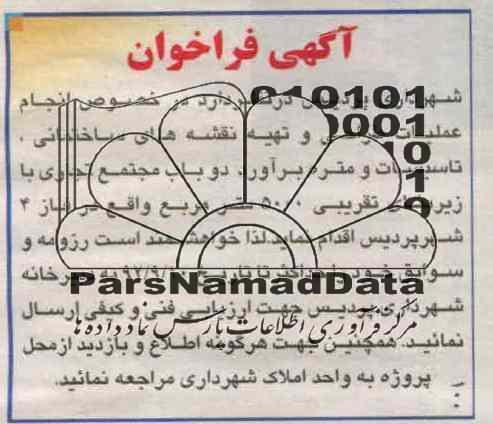 آگهی فراخوان
شهرداری پردیس در نظر دارد در خصوص انجام
عملیات و تهیه نقشه های ساختمانی ،
تاسیسات و متره برآورد دو باب مجتمع تجاری با
زیربنای تقریبی ۵۰۰۰ متر مربع واقع در فاز ۴
شهر پردیس اقدام نماید. لذا خواهشمند است رزومه و
سوابق خود را حداکثر تا تاریخ به دبیرخانه
شهرداری پردیس جهت ارزیابی فنی و کیفی ارسال
نمائید. همچنین جهت هرگونه اطلاع و بازدید از محل
پروژه به واحد املاک شهرداری مراجعه نمائید.
010101
0001
10
1
0
ParsNamadData
مرکز فرآوری اطلاعات پارس نماد داده ها